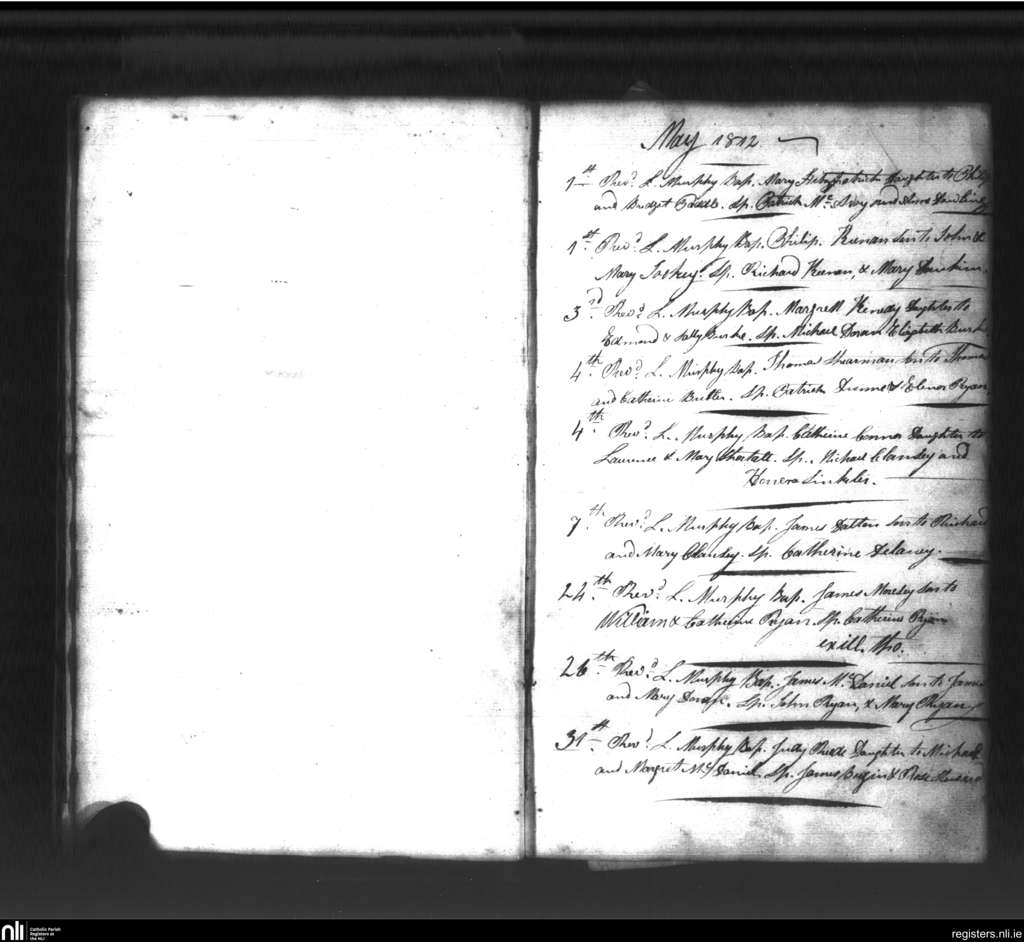 May 1812
1st Revd. L. Murphy Bap. Mary Fitzpatrick Daughter to Philip
and Bridget Sp. Patrick Mc and
1st. Revd. L. Murphy Bap. Philip. Keenan Son to John &
Mary Sp. Richard Keenan, & Mary
3rd. Revd. L. Murphy Bap. Margrett Kenedy Daughter to
Edmond & Sally Burke. Sp. Michael Doran Elizabeth Burke
4th. Revd. L. Murphy Bap. Thomas Shearman Son to Thomas
and Catherine Butler. Sp. Patrick & Elenor Ryan
4th. Revd. L. Murphy Bap. Catherine Connor Daughter to
Laurence & Mary Sp. Michael Clansey and
Honera
7th. Revd. L. Murphy Bap. James Dalton Son to Richard
and Mary Clansey. Sp. Catherine Delaney.
24th. Revd. L. Murphy Bap. James Son to
William & Catherine Ryan. Sp. Catherine Ryan
26th. Revd. L. Murphy Bap. James McDaniel Son to James
and Mary Sp. John Ryan, & Mary Ryan
31st. Revd. L. Murphy Bap. Judy Daughter to Michael
and Margret McDaniel. Sp. James & Rose
nli
Catholic Parish
Registers at
the NLI
registers.nli.ie